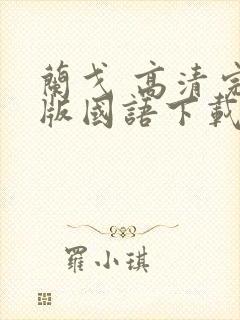 蘭戈 高清完
版國語下載
羅小琪